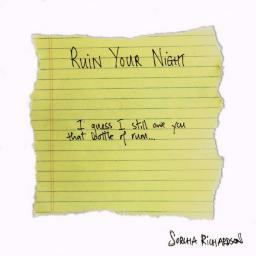 RUIN YOUR NIGHT
I guess I still owe you
that bottle of rum...
SORCHA RICHARDSON